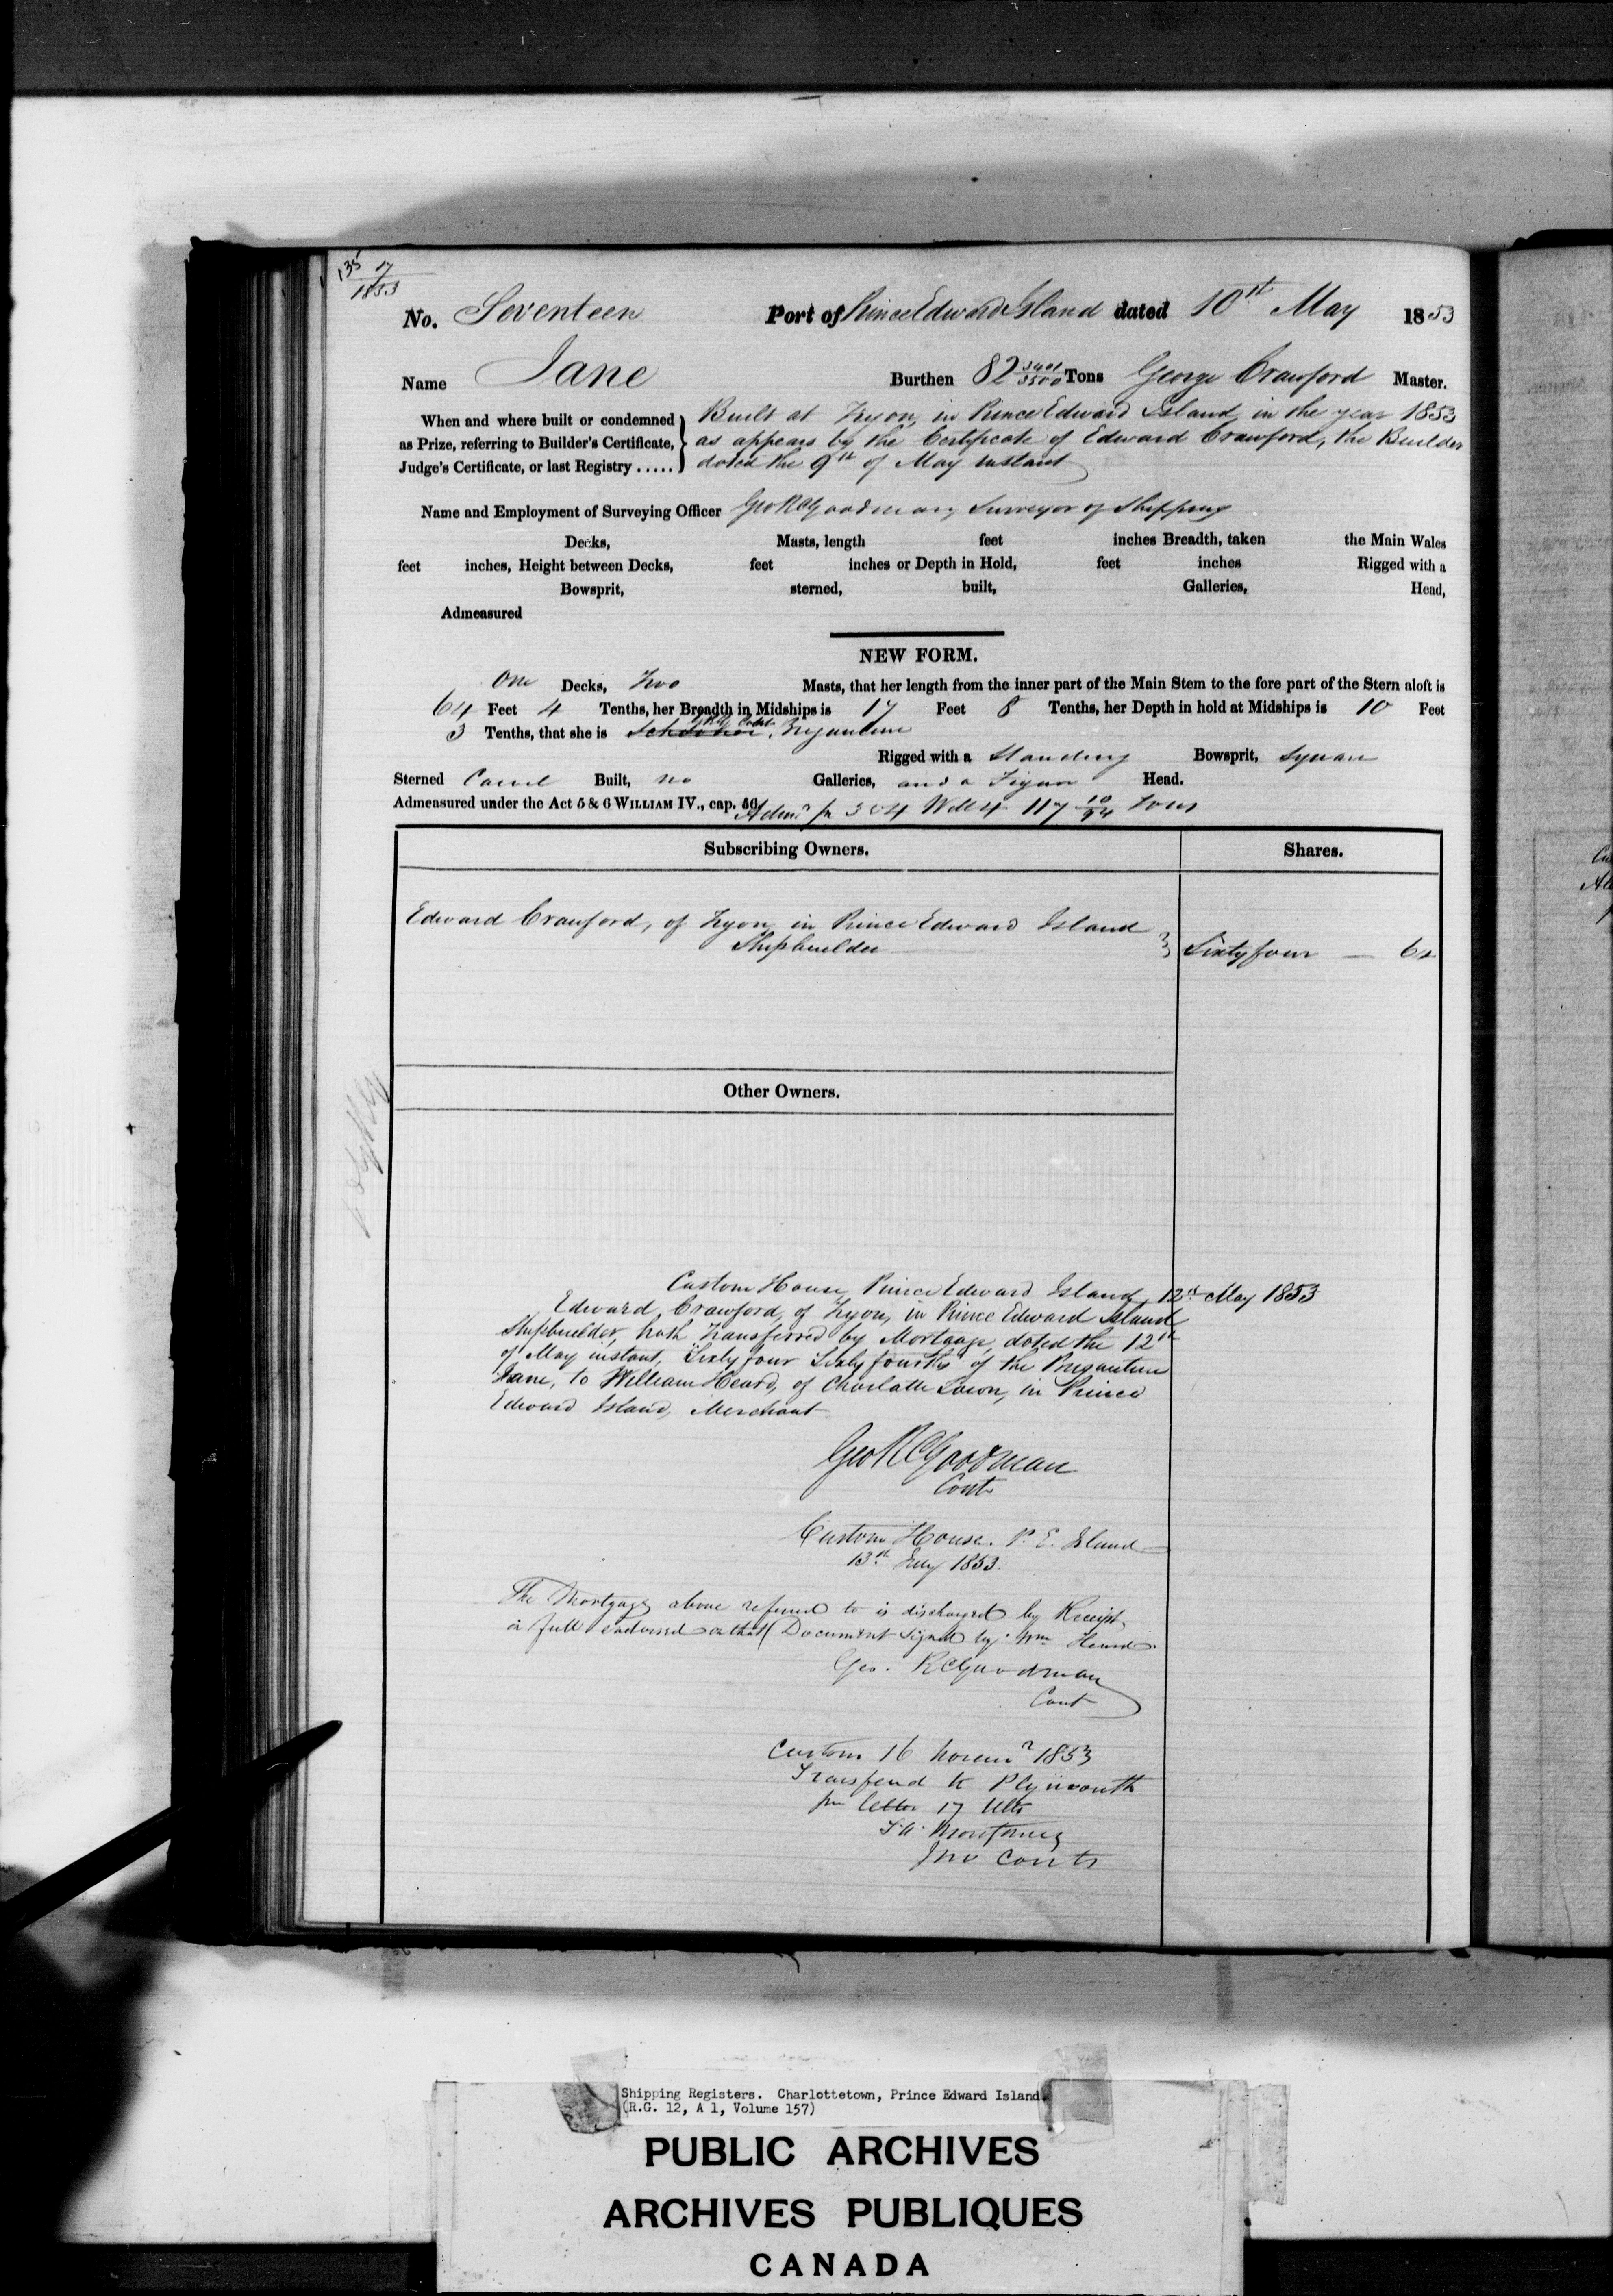 135 17
1853
No. Seventeen Port of Prince Edward Island dated 10th May 1853
Name Jane Burthen 82 3401/3500 Tons George Crawford Master.
When and where built or condemned as Prize, referring to Builder's Certificate, Judge's Certificate, or last Registry .....
Built at Tryon, in Prince Edward Island in the year 1853
as appears by the Certificate of Edward Crawford, the Builder
dated the 9th of May instant
Name and Employment of Surveying Officer Geo R Goodman, Surveyor of Shipping
Decks, Masts, length feet inches Breadth, taken the Main Wales
feet inches, Height between Decks, feet inches or Depth in Hold, feet inches Rigged with a
Bowsprit, sterned, built, Galleries, Head,
Admeasured
NEW FORM.
One Decks, Two Masts, that her length from the inner part of the Main Stem to the fore part of the Stern aloft is
64 Feet 4 Tenths, her Breadth in Midships is 17 Feet 8 Tenths, her Depth in hold at Midships is 10 Feet
3 Tenths, that she is Schooner, Brigantine
Rigged with a Standing Bowsprit, Square
Sterned Carvel Built, no Galleries, and a Figure Head.
Admeasured under the Act 5 & 6 WILLIAM IV., cap. 56,
Adms pr 3 & 4 Will 4 117 10/94 Tons
Subscribing Owners. Shares.
Edward Crawford, of Tryon in Prince Edward Island
Shipbuilder Sixty four — 64
Other Owners.
Custom House Prince Edward Island 12th May 1853
Edward Crawford, of Tryon, in Prince Edward Island
Shipbuilder, hath Transferred by Mortgage, dated the 12th
of May instant, Sixty four Sixty fourths of the Brigantine
Jane, to William Heard, of Charlotte Town, in Prince
Edward Island, Merchant
Geo R Goodman
Cont
Custom House. P. E. Island
13th July 1853.
The Mortgage above referred to is discharged by Receipt
in full endorsed on that Document signed by Wm Heard.
Geo. R Goodman
Cont
Custom 16 Novemr 1853
Transferd to Plymouth
pr letter 17 Ulto
Shipping Registers. Charlottetown, Prince Edward Island
(R.G. 12, A 1, Volume 157)
PUBLIC ARCHIVES
ARCHIVES PUBLIQUES
CANADA